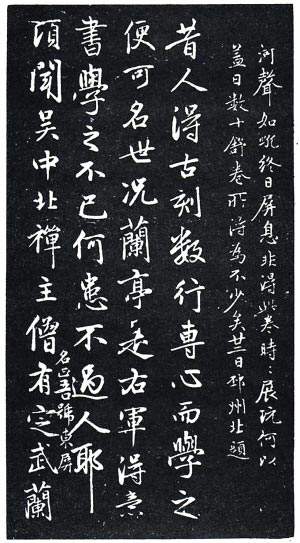 河聲如吼終日屏息非得此卷時〻展玩何以
盖日数十舒卷所得為不少矣廿二日邳州北題
昔人得古刻数行專心而學之
便可名世况蘭亭是右軍得意
書學之不已何患不過人耶
頃聞吳中北禪主僧名正吾號東屏有定武蘭